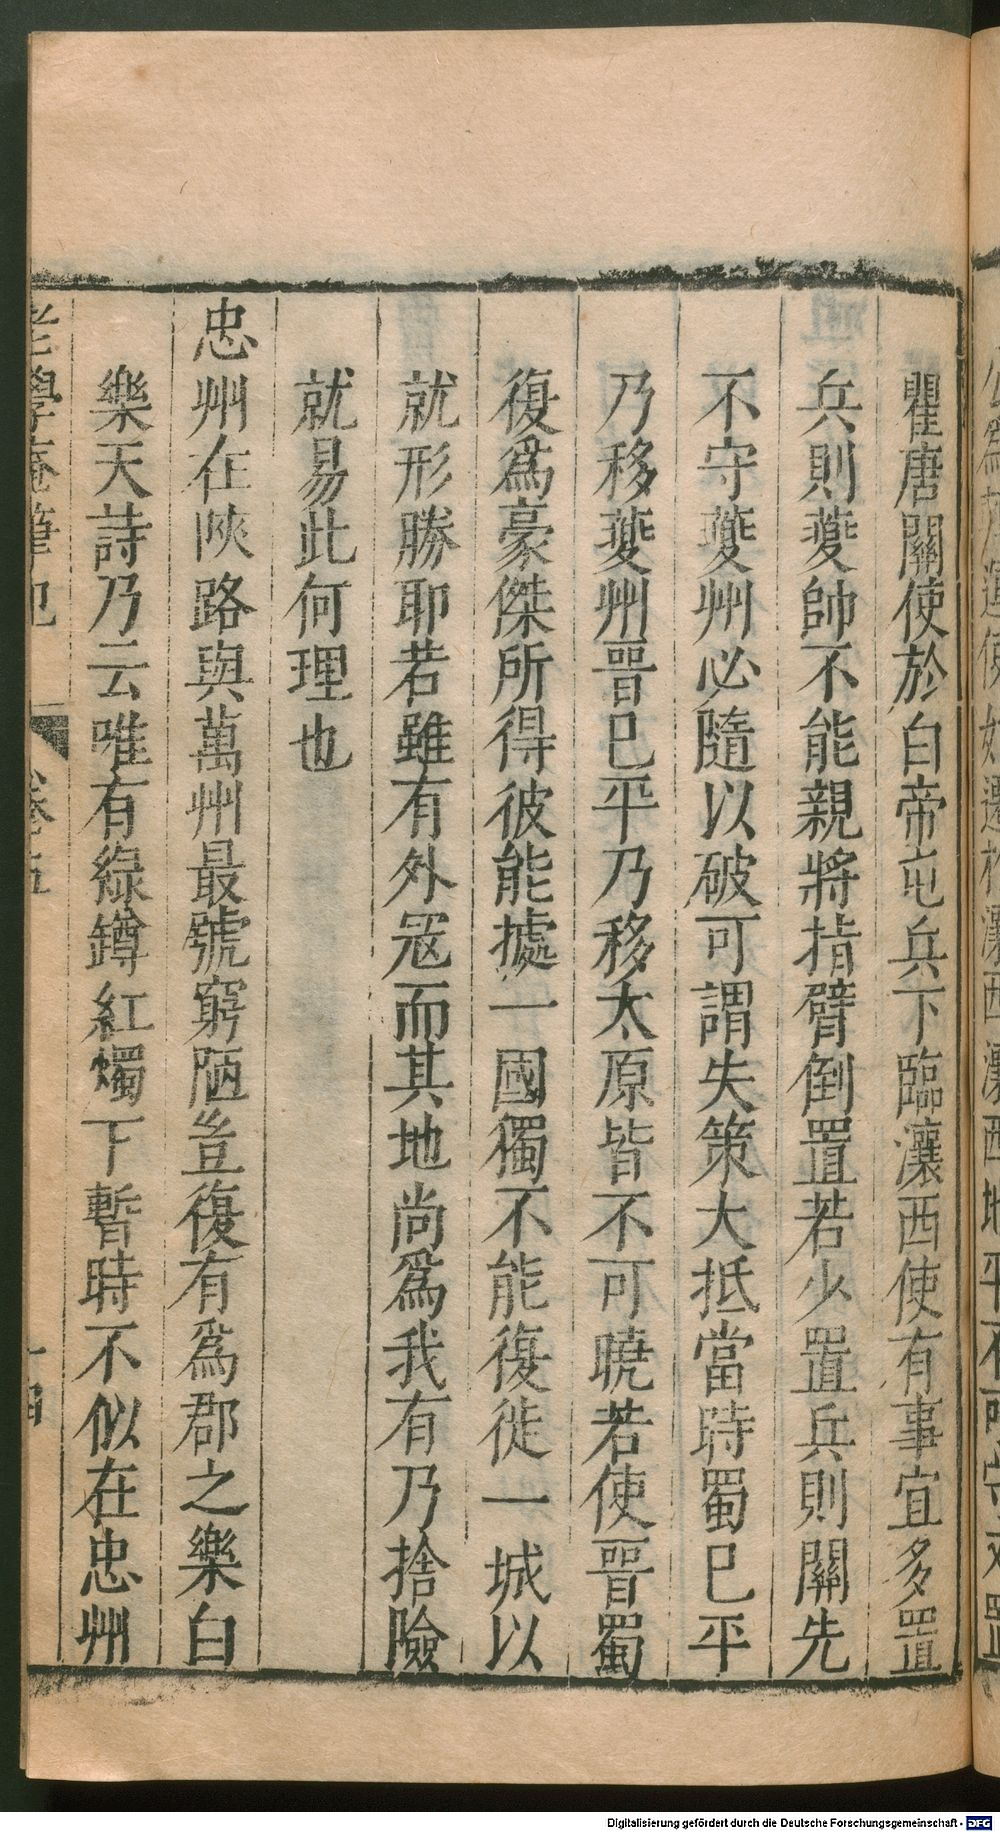 瞿唐關使於白帝屯兵下臨瀼西使有事宜多置
兵則夔帥不能親將指臂倒置若少置兵則關先
不守夔州必隨以破可謂失策大抵當時蜀已平
乃移夔州晉已平乃移太原皆不可曉若使晉蜀
復爲豪傑所得彼能據一國獨不能復徙一城以
就形勝耶若雖有外寇而其地尚爲我有乃捨險
就易此何理也
忠州在陜路與萬州最號窮陋豈復有爲郡之樂白
樂天詩乃云唯有綠罇紅燭下暫時不似在忠州
老學庵筆記 卷五 十四
Digitalisierung gefördert durch die Deutsche Forschungsgemeinschaft - DFG